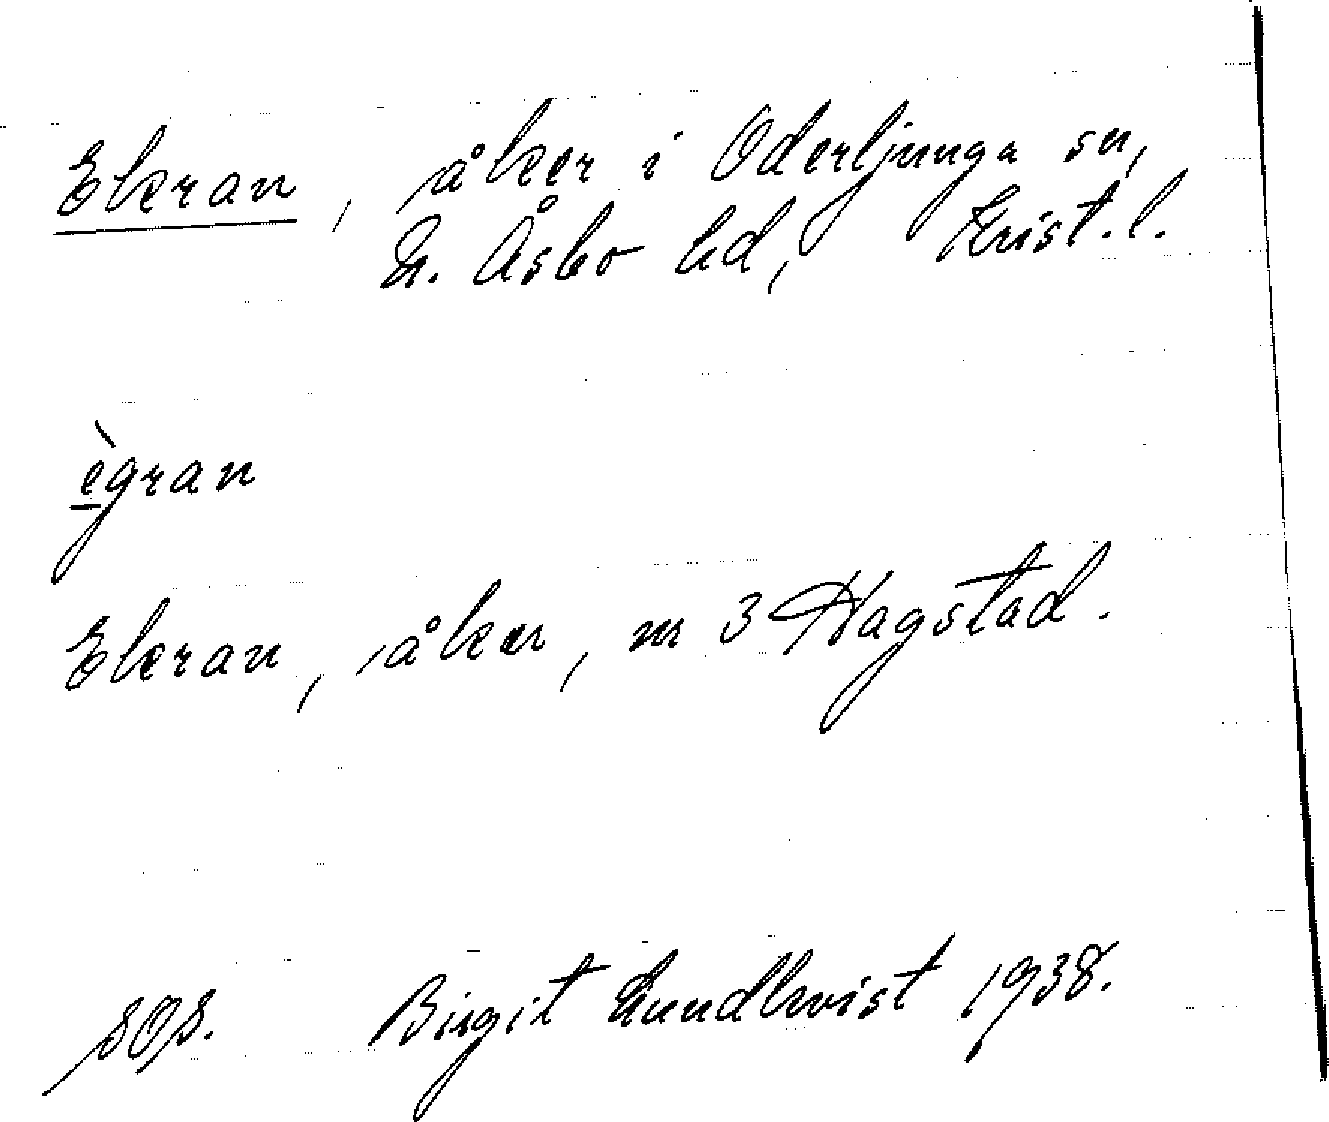 Ekran, åker i Oderljunga sn,
N. Åsbo hd, Krist. l.
ègran
Ekran, åker, nr 3 Hagstad.
SOS. Birgit Lundkvist 1938.